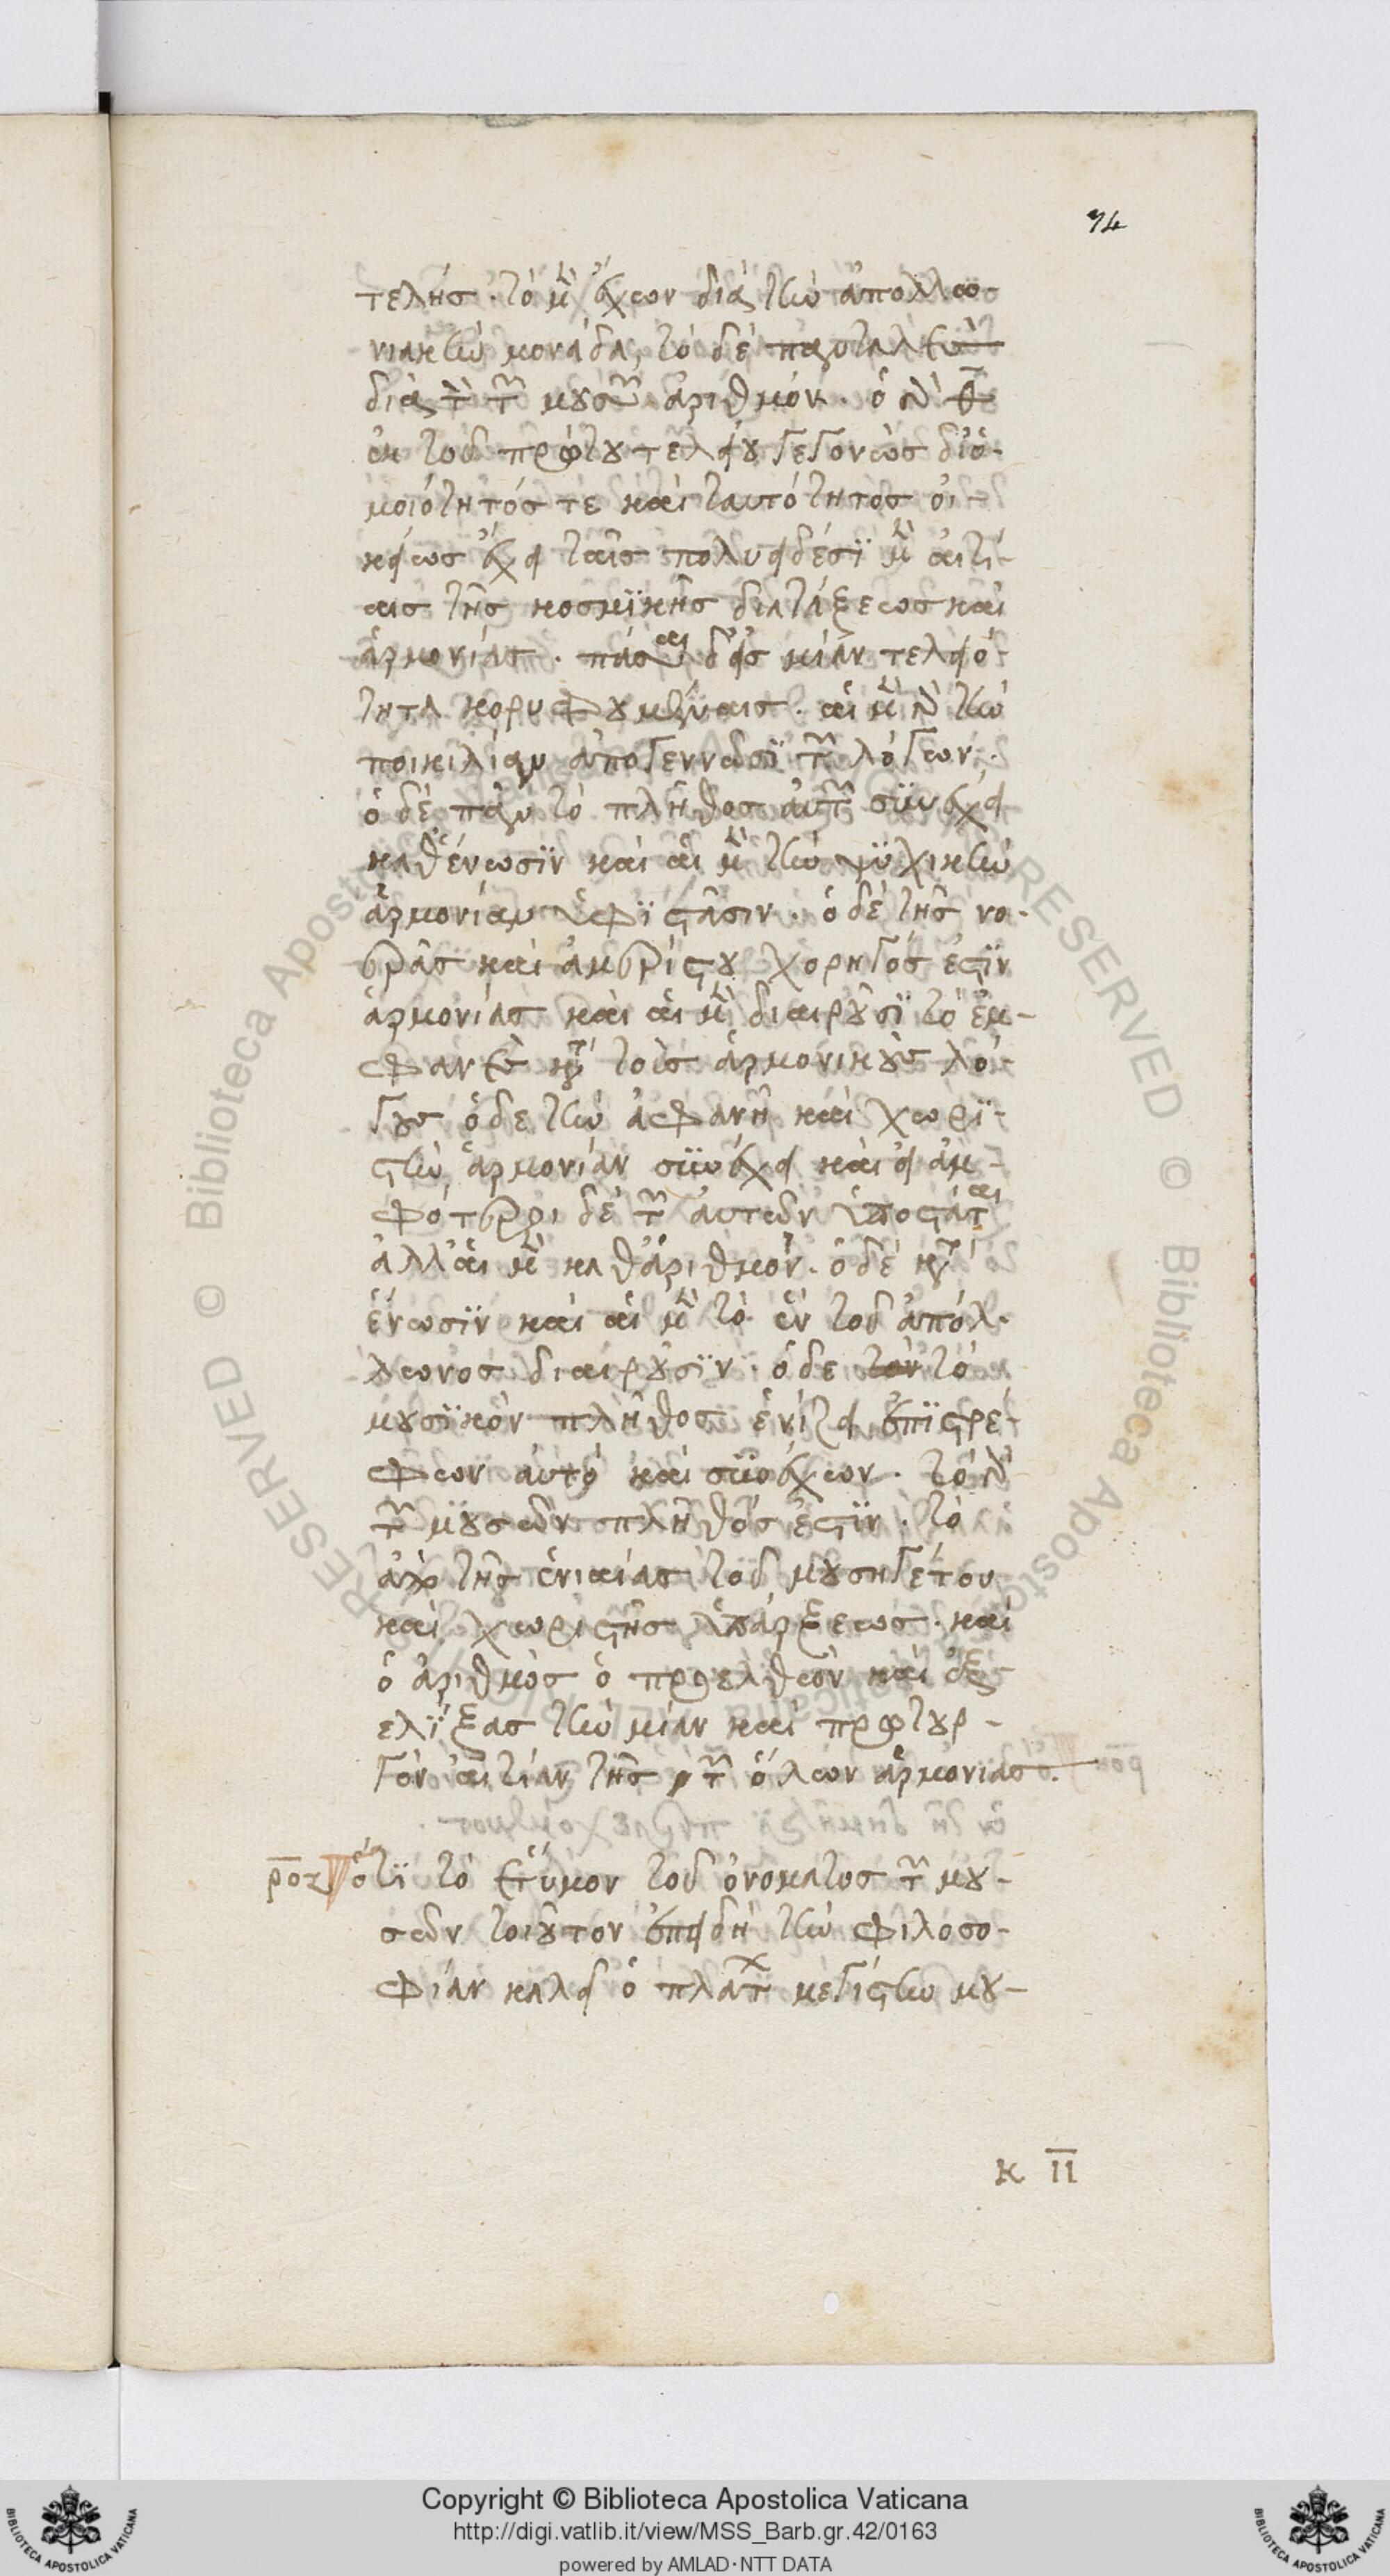 74
τελής. τὸ μὲν ἔχων διὰ τὴν ἀπολλω-
νιακὴν μονάδα, τὸ δὲ
διὰ τὸν τῶν μουσῶν ἀριθμόν. ὁ γὰρ
ἐκ τοῦ πρώτου τελείου γεγονὼς δι' ὁ-
μοιότητός τε καὶ ταυτότητος οἰ-
κείως ἔχει ταῖς πολυειδέσι μὲν αἰτί-
αις τῆς κοσμικῆς διατάξεως καὶ
ἁρμονίας. πάσαις δ' εἰς μίαν τελειό-
τητα κορυφουμέναις. αἱ μὲν γὰρ τὴν
ποικιλίαν ἀπογεννῶσι τῶν λόγων.
ὁ δὲ πᾶν τὸ πλῆθος αὐτῶν συνέχει
καθ' ἕνωσιν καὶ αἱ μὲν τὴν ψυχικὴν
ἁρμονίαν ὑφιστᾶσιν. ὁ δὲ τῆς νο-
ερᾶς καὶ ἀμερίστου χορηγός ἐστιν
ἁρμονίας καὶ αἱ μὲν διαιροῦσι τὸ ἐμ-
φανὲς κατὰ τοὺς ἁρμονικοὺς λό-
γους ὁ δὲ τὴν ἀφανῆ καὶ χωρι-
στὴν ἁρμονίαν συνέχει καὶ εἰ ἀμ-
φότεροι δὲ τῶν αὐτῶν ὑποστάται
ἀλλ' αἱ μὲν κατ' ἀριθμόν. ὁ δὲ κατὰ
ἕνωσιν καὶ αἱ μὲν τὸ ἓν τοῦ ἀπόλ-
λωνος διαιροῦσιν. ὁ δὲ τὸν τὸ
μουσικὸν πλῆθος ἑνίζει ἐπιστρέ-
φων αὐτὸ καὶ συνέχων. τὸ γὰρ
τῶν μουσῶν πλῆθός ἐστιν. τὸ
ἀπὸ τῆς ἑνιαίας τοῦ μουσηγέτου
καὶ χωριστῆς ὑπάρξεως. καὶ
ὁ ἀριθμὸς ὁ προελθὼν καὶ ἐξ-
ελίξας τὴν μίαν καὶ πρωτουρ-
γὸν αἰτίαν τῆς τῶν ὅλων ἁρμονίας.
ροζ ὅτι τὸ ἔτυμον τοῦ ὀνόματος τῶν μου-
σῶν τοιοῦτον ἐπειδὴ τὴν φιλοσο-
φίαν καλεῖ ὁ πλάτων μεγίστην μου-
κ ΙΙ
Copyright © Biblioteca Apostolica Vaticana
http://digi.vatlib.it/view/MSS_Barb.gr.42/0163
powered by AMLAD·NTT DATA